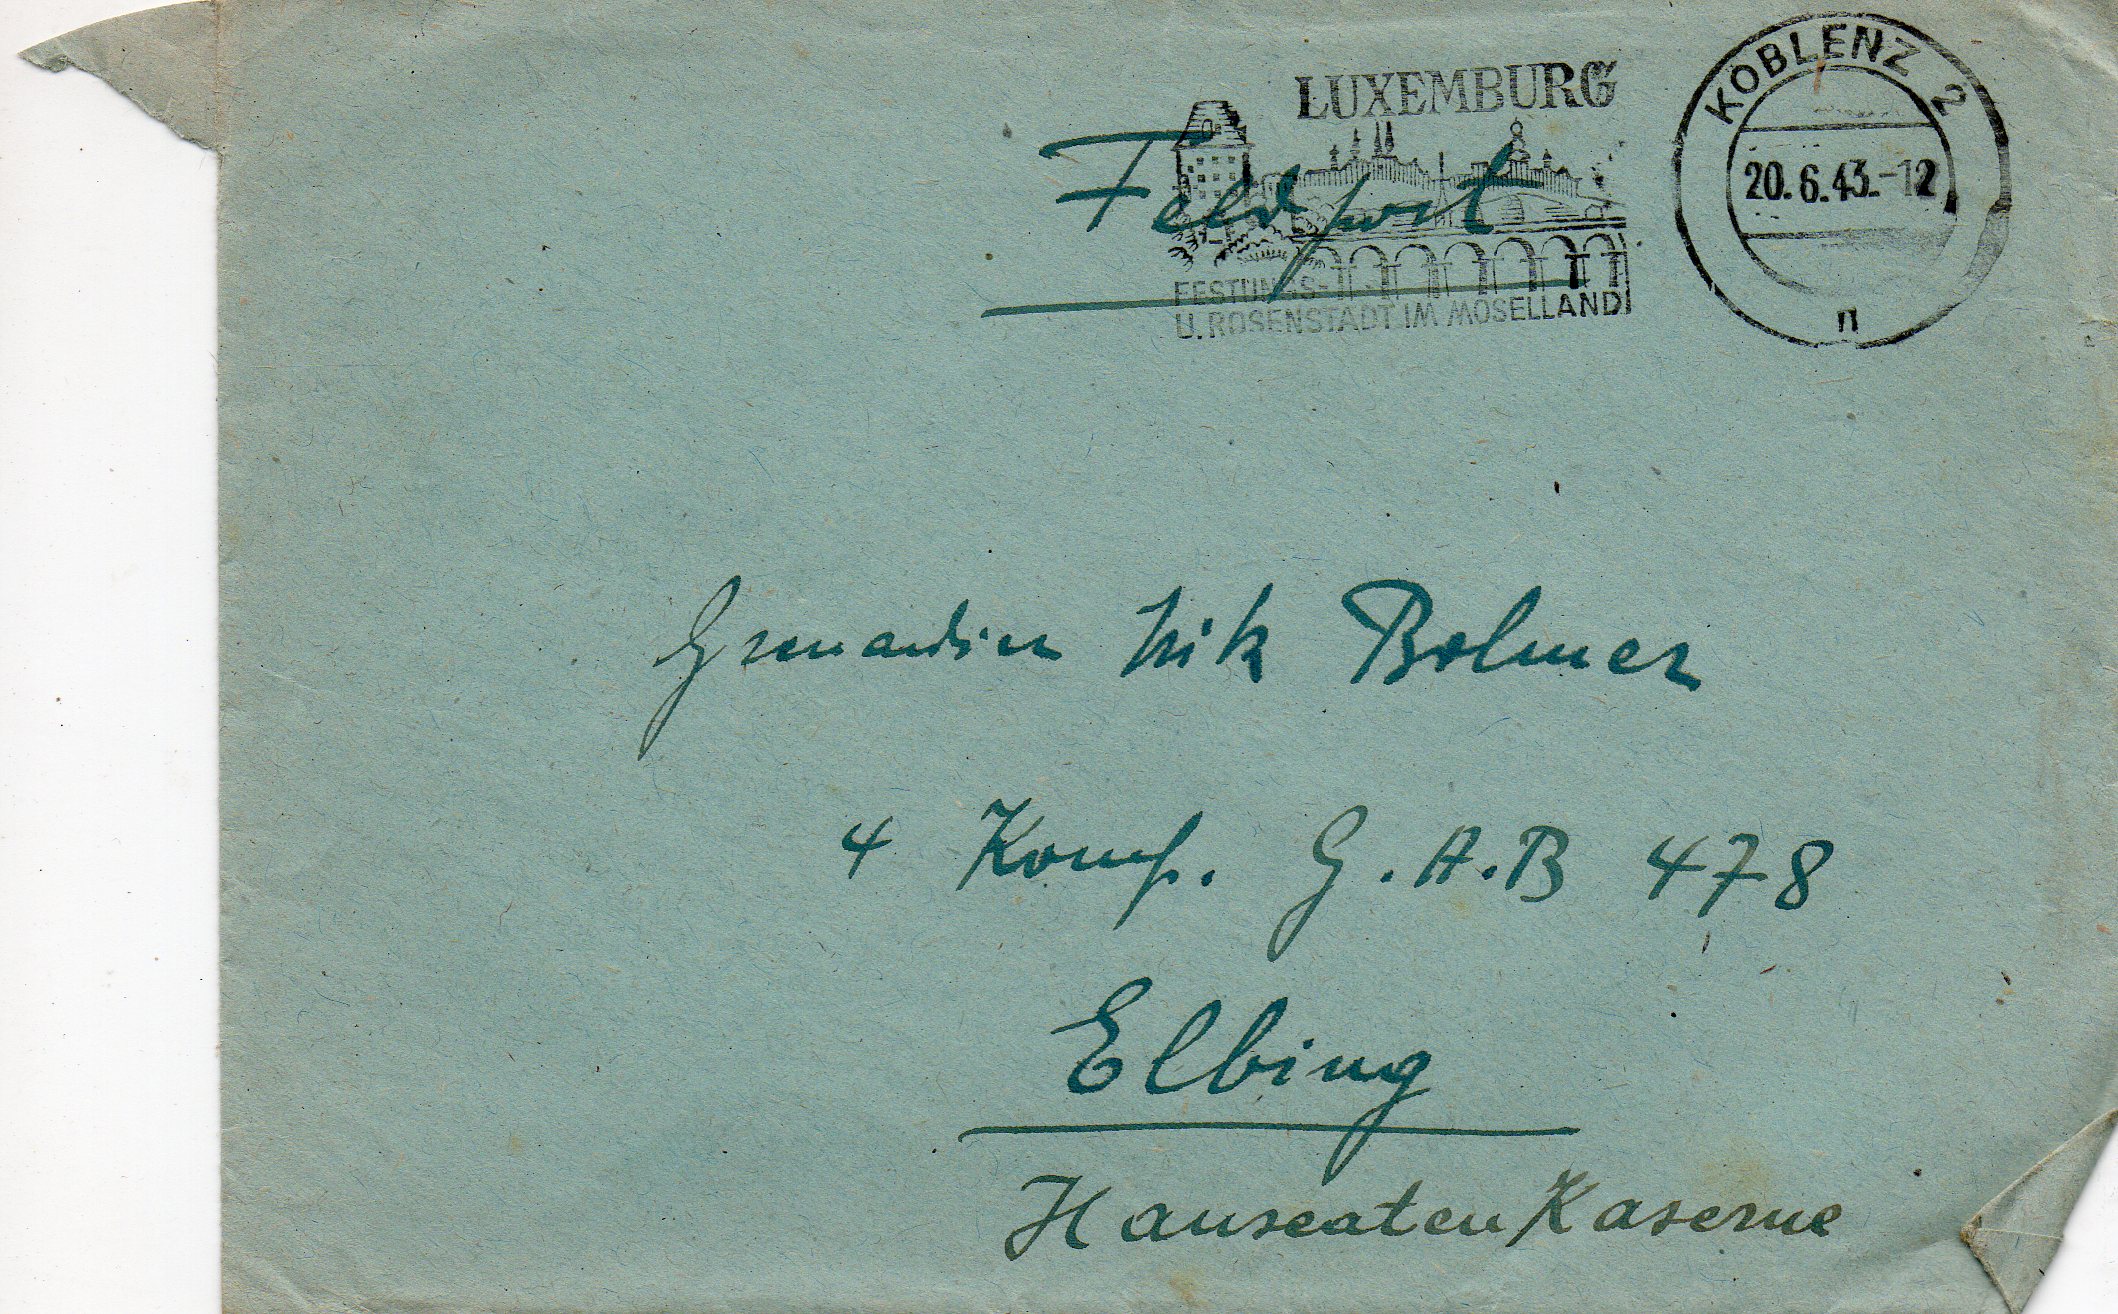 LUXEMBURG
FESTUNGS-
U. ROSENSTADT IM MOSELLAND
KOBLENZ 2
20.6.43.-12
n
Feldpost
Grenadier Nik Bolmer
4 Komp. G.A.B 478
Elbing
Hanseaten Kaserne